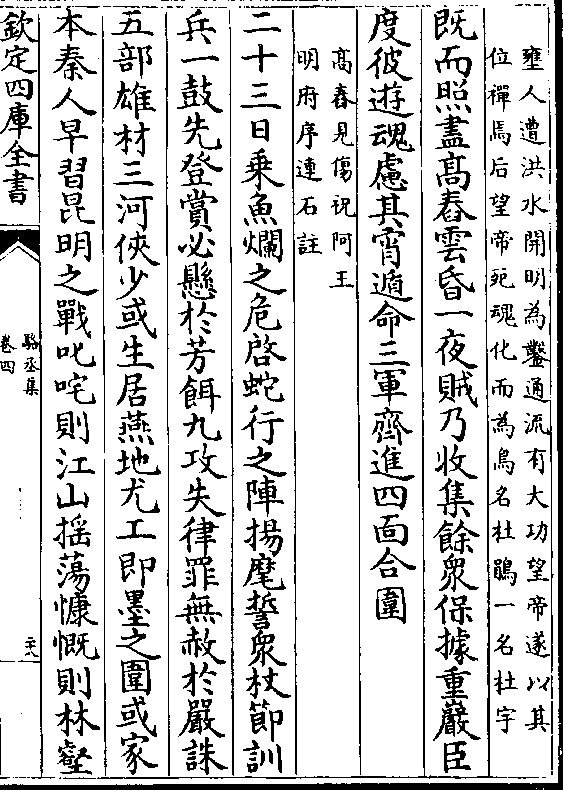 壅人遭洪水開明為鑿通流有大功望帝遂以其
位禪焉后望帝死魂化而為鳥名杜鵑一名杜宇
既而照盡高舂雲昏一夜賊乃收集餘衆保據重巖臣
度彼遊魂慮其宵遁命三軍齊進四面合圍
高舂見傷祝阿王
明府序連石註
二十三日乗魚爛之危啓蛇行之陣揚麾誓衆杖節訓
兵一鼓先登賞必懸於芳餌九攻失律罪無赦於嚴誅
五部雄材三河俠少或生居燕地尤工即墨之圍或家
本秦人早習昆明之戰叱咤則江山揺蕩慷慨則林壑
欽定四庫全書
駱丞集
卷四
二十八